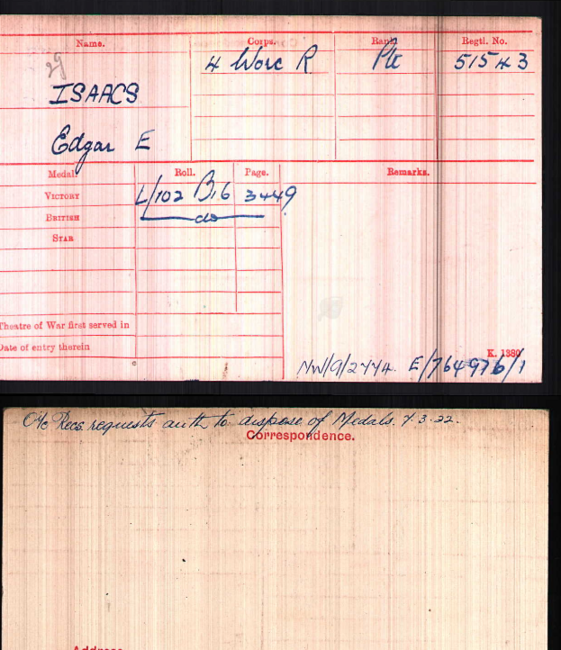 Name. Corps. Rank Regtl. No.
4 Worc R Pte 51543
ISAACS
Edgar E
Medal. Roll. Page. Remarks.
VICTORY L/102 B16 3449
BRITISH do
STAR
Theatre of War first served in
Date of entry therein
K. 1380
NW/9/2774. E/764976/1
O/c Recs. requests auth to dispose of Medals. 7.3.22.
Correspondence.
Address